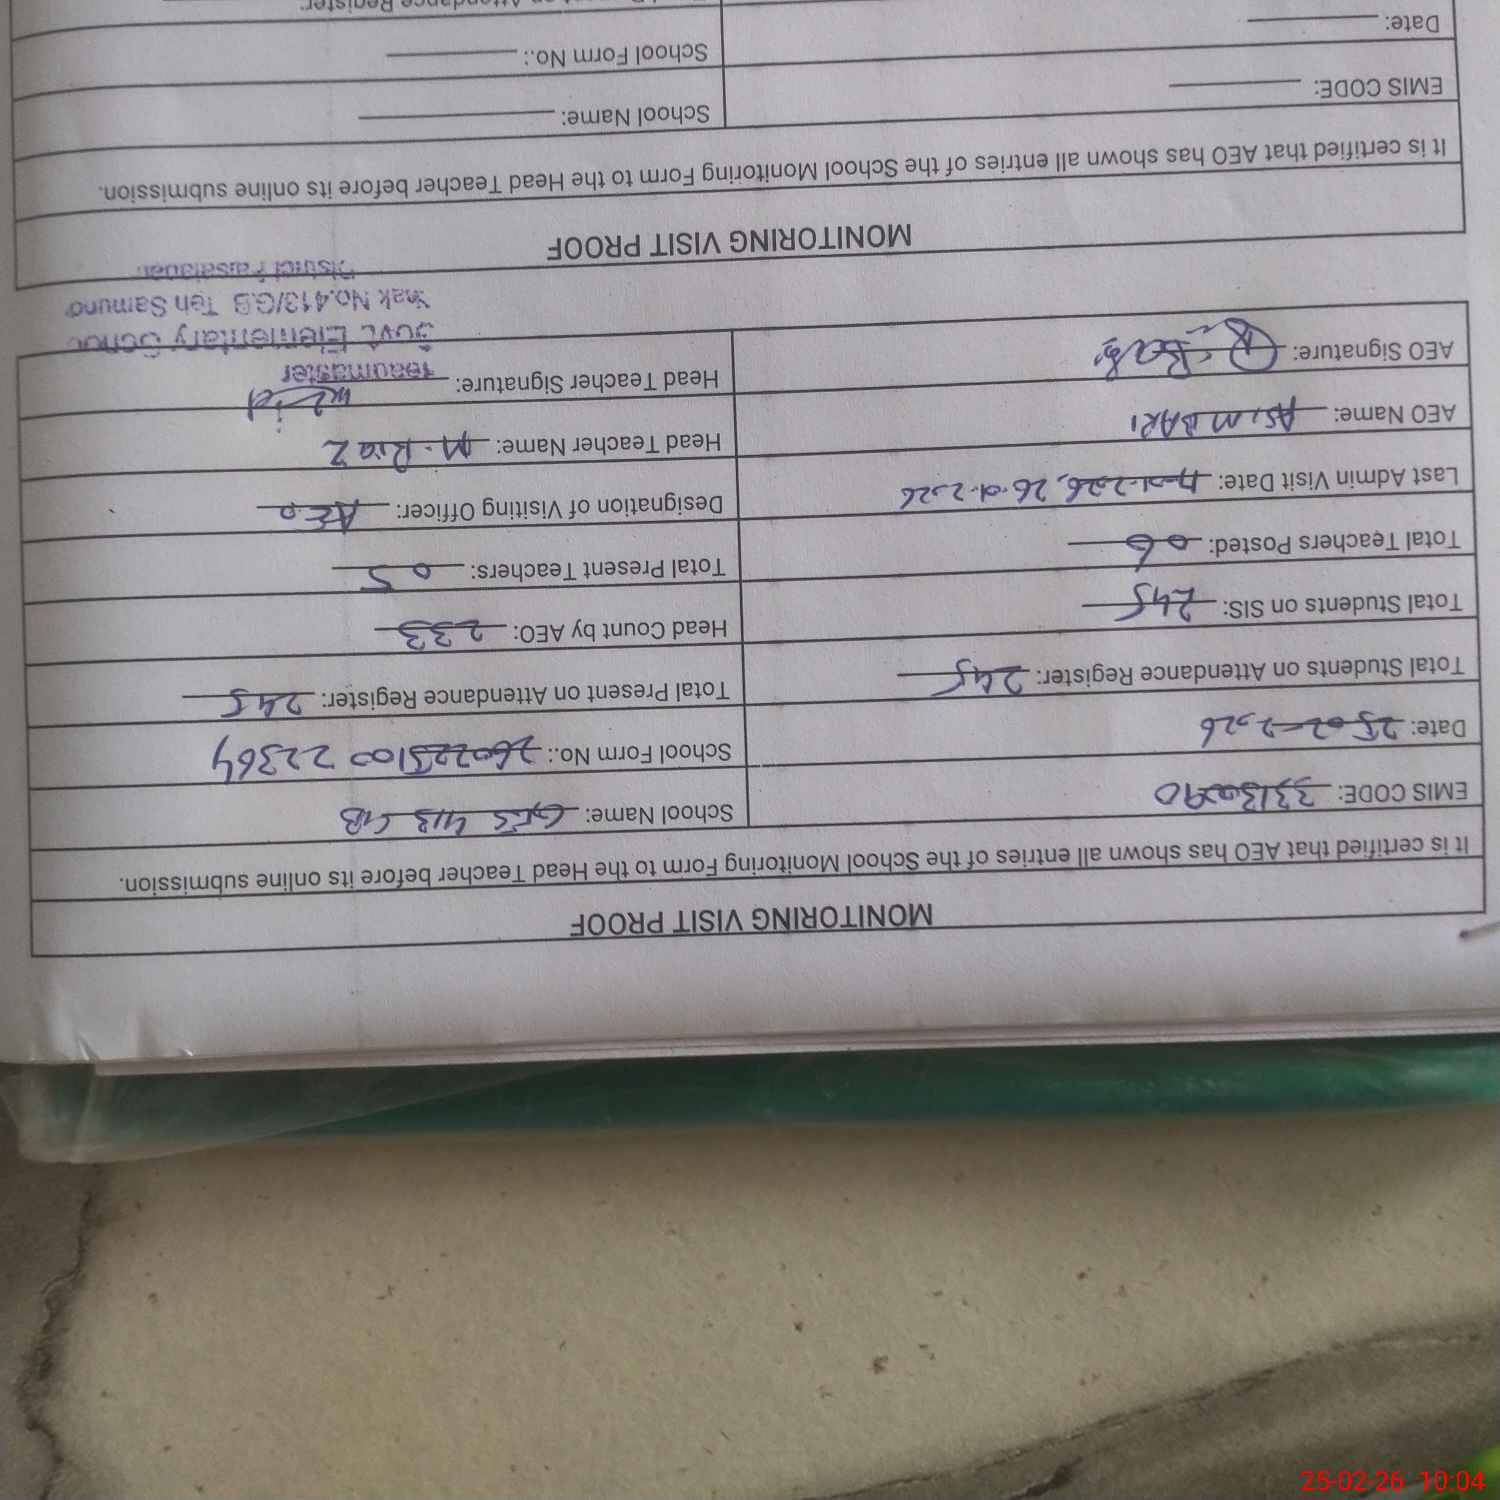 MONITORING VISIT PROOF
It is certified that AEO has shown all entries of the School Monitoring Form to the Head Teacher before its online submission.
EMIS CODE: School Name: GES 413 GB
Date: 25-02-2026 School Form No.: 26022510022364
Total Students on Attendance Register: 245 Total Present on Attendance Register: 245
Total Students on SIS: 245 Head Count by AEO: 233
Total Teachers Posted: 06 Total Present Teachers: 05
Last Admin Visit Date: 26-01-2026 Designation of Visiting Officer: AEO
AEO Name: ASIM BARI Head Teacher Name: M. Riaz
AEO Signature: Head Teacher Signature:
Headmaster
Govt. Elementary School
Chak No.413/G.B Teh Samund
District Faisalabad
MONITORING VISIT PROOF
It is certified that AEO has shown all entries of the School Monitoring Form to the Head Teacher before its online submission.
EMIS CODE: School Name:
Date: School Form No.:
on Attendance Register:
25-02-26 10:04